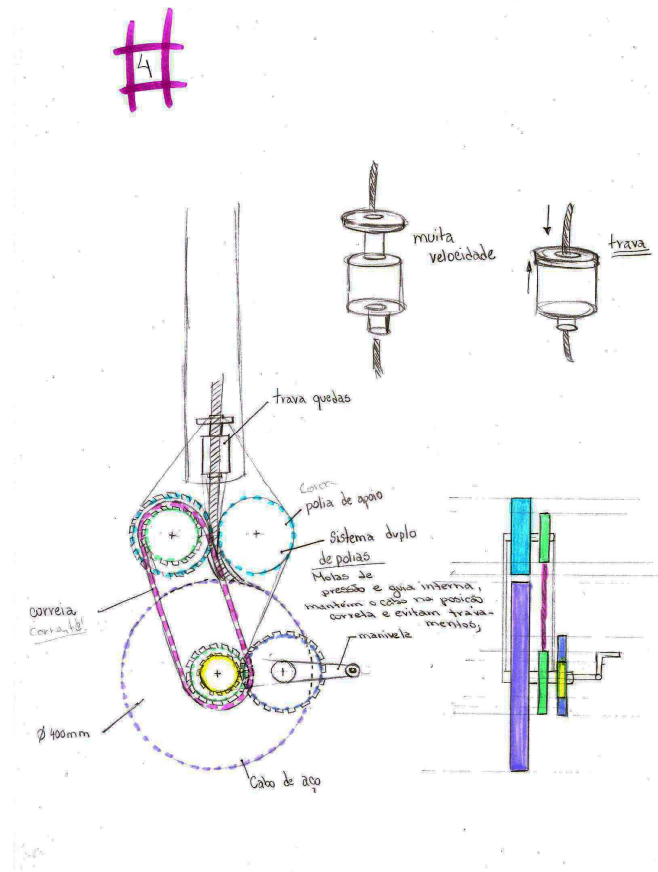 4
muita
velocidade
trava
trava quedas
polia de apoio
Sistema duplo
de polias
Molas de
pressão e guia interna,
mantém o cabo na posição
correta e evitam trava-
mentos,
correia
corrente!
manivela
Ø 400mm
Cabo de aço